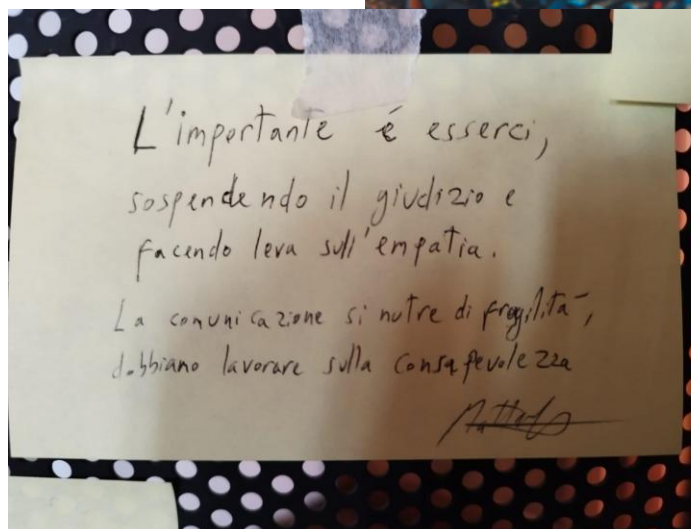 L'importante é esserci,
sospendendo il giudizio e
facendo leva sull'empatia.
La comunicazione si nutre di fragilità,
dobbiamo lavorare sulla consapevolezza